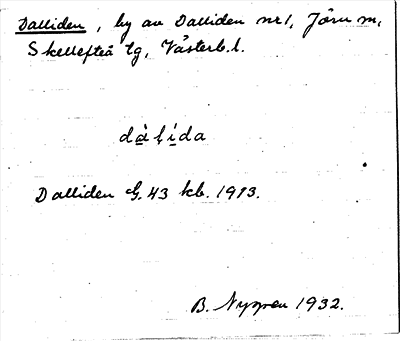 Dalliden, by av Dalliden nr 1, Jörn sn,
Skellefteå tg, Västerb. l.
dàlída
Dalliden G. 43 kb. 1913.
B. Nygren 1932.